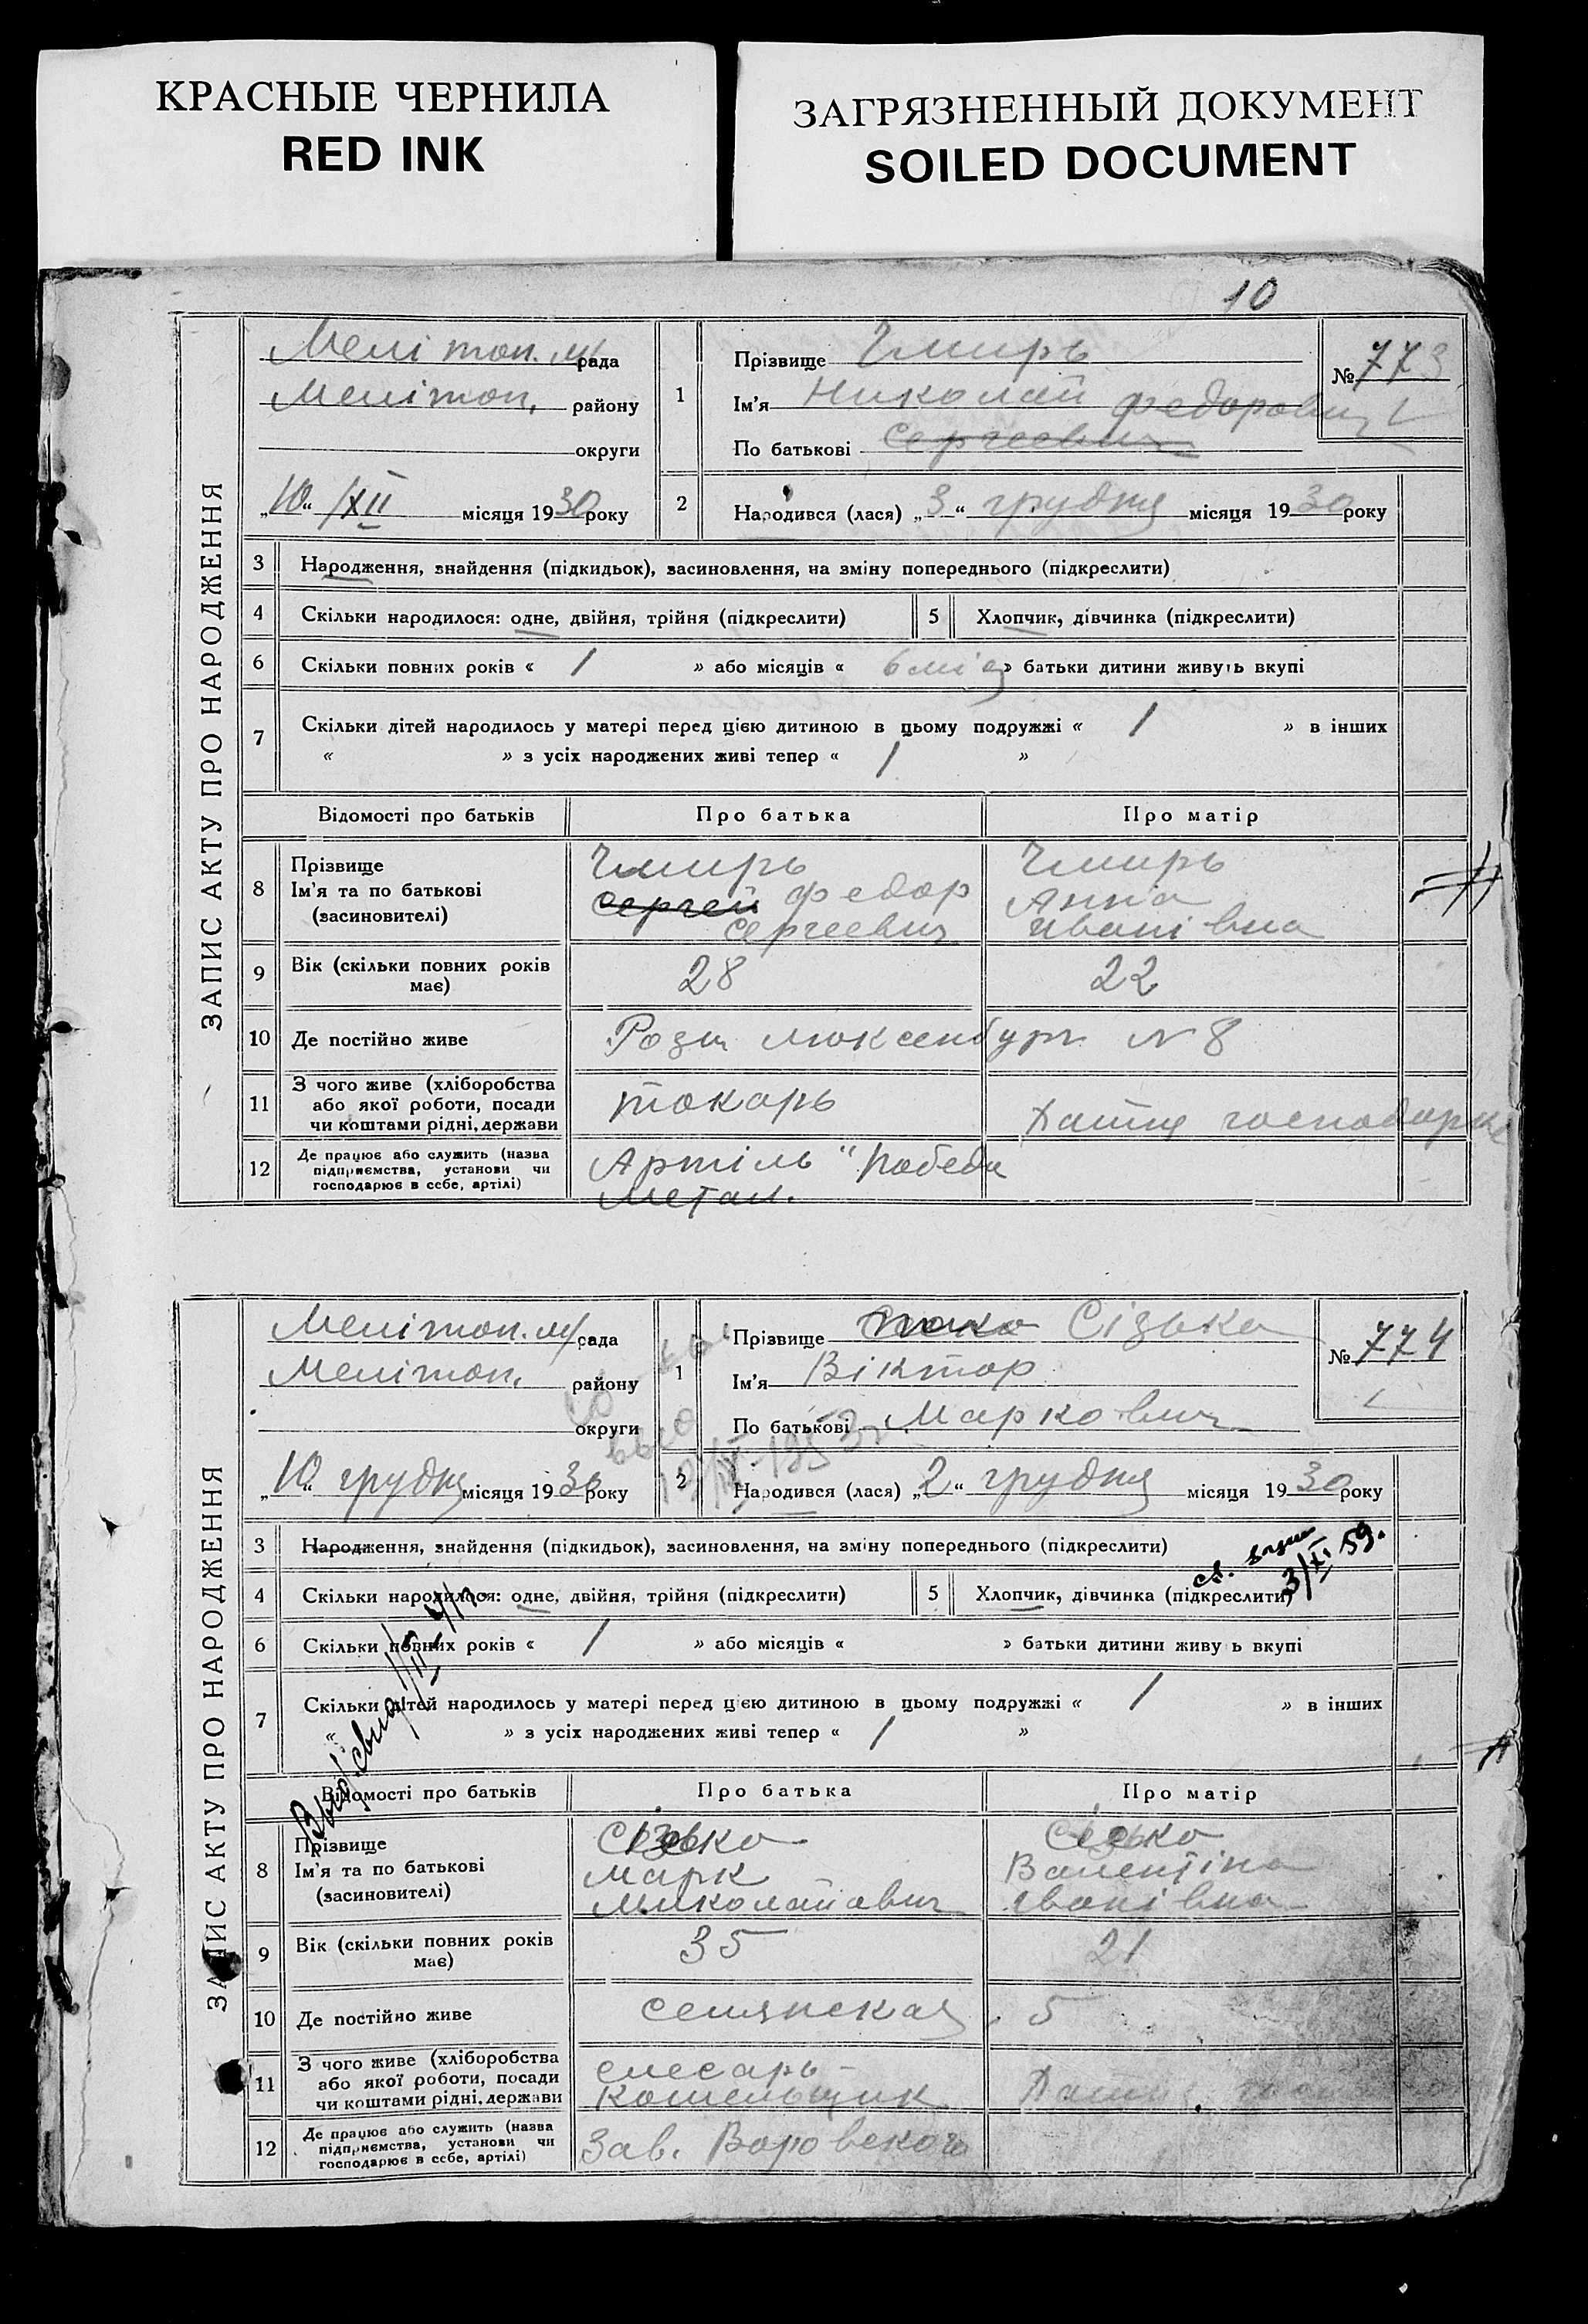 КРАСНЫЕ ЧЕРНИЛА
RED INK
ЗАГРЯЗНЕННЫЙ ДОКУМЕНТ
SOILED DOCUMENT
10
ЗАПИС АКТУ ПРО НАРОДЖЕННЯ
Мелітоп. м/рада
Мелітоп. району
округи
„10“ /XII місяця 1930 року
1 Прізвище Чмирь
Ім'я Николай Федорович
По батькові Сергеевич
№ 773
2 Народився (лася) „3“ грудня місяця 1930 року
3 Народження, знайдення (підкидьок), засиновлення, на зміну попереднього (підкреслити)
4 Скільки народилося: одне, двійня, трійня (підкреслити) 5 Хлопчик, дівчинка (підкреслити)
6 Скільки повних років « 1 » або місяців « 6 міс » батьки дитини живуть вкупі
7 Скільки дітей народилось у матері перед цією дитиною в цьому подружжі « 1 » в інших
« » з усіх народжених живі тепер « 1 »
Відомості про батьків Про батька Про матір
8 Прізвище Чмирь Чмирь
Ім'я та по батькові Сергей Федор Анна
(засиновителі) Сергеевич Іванівна
9 Вік (скільки повних років має) 28 22
10 Де постійно живе Рози Люксембург N 8
11 З чого живе (хліборобства або якої роботи, посади чи коштами рідні, держави токарь Дашня господарка
12 Де працює або служить (назва підприємства, установи чи господарює в себе, артілі) Артіль "Победа
Метал.
ЗАПИС АКТУ ПРО НАРОДЖЕННЯ
Мелітоп. м/рада
Мелітоп. району
округи
„10“ грудня місяця 1930 року
1 Прізвище Сізька
Ім'я Віктор
По батькові Маркович
№ 774
2 Народився (лася) „2“ грудня місяця 1930 року
3 Народження, знайдення (підкидьок), засиновлення, на зміну попереднього (підкреслити)
3/XI 59.
4 Скільки народилося: одне, двійня, трійня (підкреслити) 5 Хлопчик, дівчинка (підкреслити)
6 Скільки повних років « 1 » або місяців « » батьки дитини живу ь вкупі
7 Скільки дітей народилось у матері перед цією дитиною в цьому подружжі « 1 » в інших
« » з усіх народжених живі тепер « 1 »
Відомості про батьків Про батька Про матір
8 Прізвище Сізько Сізько
Ім'я та по батькові Марк Валентіна
(засиновителі) Миколайович Іванівна
9 Вік (скільки повних років має) 35 21
10 Де постійно живе Селянская 5
11 З чого живе (хліборобства або якої роботи, посади чи коштами рідні, держави слесарь-
котельщик
12 Де працює або служить (назва підприємства, установи чи господарює в себе, артілі) Зав. Воровского